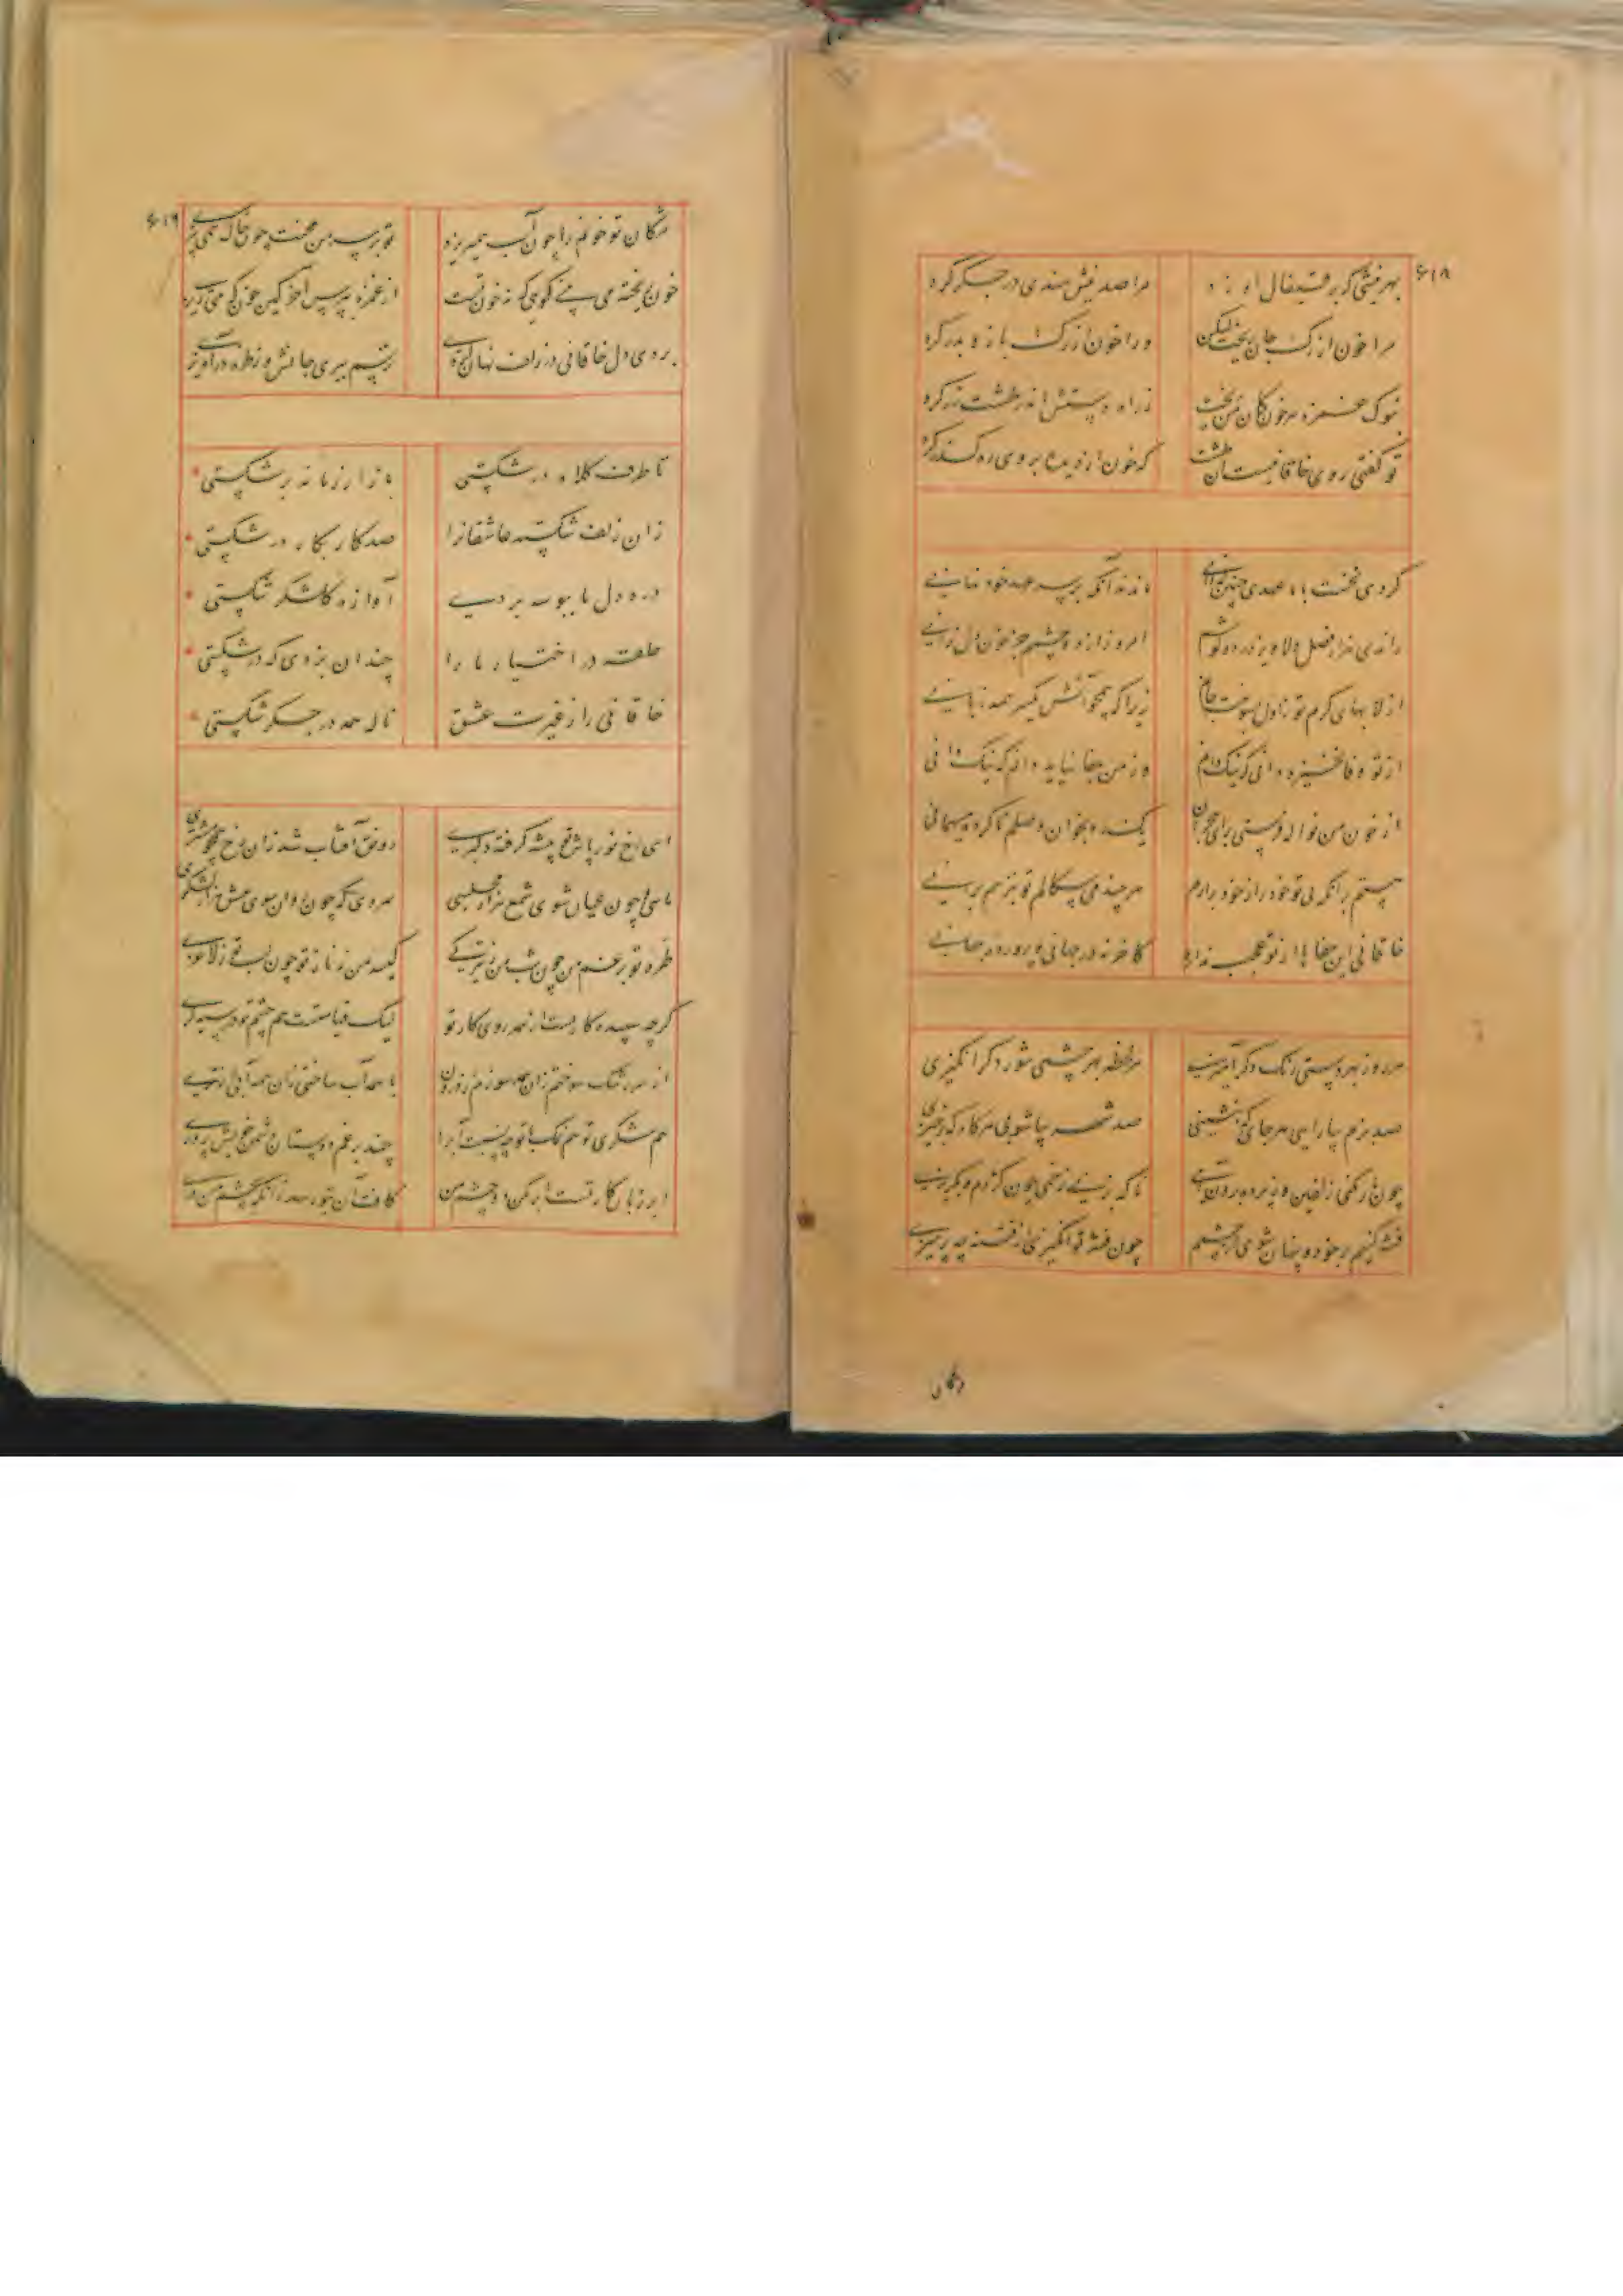 ۶۱۸
بهر نیشی که بر قیفال او زد مرا صد نیش هندی در جگر کرد
مرا خون از رگ جان ریخت لیکن ورا خون از رگ بازو بدر کرد
بنوک غمزه هر خون کان ز من ریخت ز راه دستش اندر طشت زر کرد
تو گفتی روی خاقانیست آن طشت که خون از دیده بر وی رهگذر کرد
کردی نخست با ما عهدی چنانکه دانی ماند بدانکه بر سر عهد خود نمانی
راندی بنزد هر فصل والا و برزدوده امروز از دو چشمم جز خون دل نرانی
از لابهای گرم تو ز اول بسوخت جانم زیرا که همچو آتش یکسر همه زبانی
از تو وفا نخیزد دانی که نیک دانم وز من جفا نیاید دانم که نیک دانی
از خون من نواله فرستی برای هجران یکشب بخوان وصلم ناکرده میهمانی
هستم بر آنکه بی تو خود را ز خود برارم هر چند می سگالم تو نیز هم برانی
خاقانی این جفاها از تو عجب ندارد کاخر نه در جهانی و پرورده جهانی
هر روز بهر دستی رنگ دگر آمیزی هر لحظه بهر چشمی شور دگر انگیزی
صد بزم بیارایی هر جای که بنشینی صد شهر بیاشوبی هر گاه که برخیزی
چون مار کنی زلفین وز پرده برون آیی ناگه بزنی زخمی چون کژدم و بگریزی
فتنه کنیم بر خود و پنهان شوی از چشمم چون فتنه تو انگیزی از فتنه چه پرهیزی
مژگان
۶۱۹
مژگان تو خونم را چون آب همی ریزد تو بر سر من محنت چون خاک همی بیزی
خون ریخته می بینی گویی که نه خون تست از غمزه بپرس آخر کین خون که می ریزی
بردی دل خاقانی در زلف نهان کردی ترسم ببری جانش وز طره درآویزی
تا طرف کلاه در شکستی بازار زمانه بر شکستی
زان زلف شکسته عاشقان را صد کار بکار در شکستی
در ده دل ما ببوسه بر دی آوازه گلشکر شکستی
حلقه در اختیار ما را چندان بزدی که در شکستی
خاقانی را ز غیرت عشق ناله همه در جگر شکستی
ای رخ نور پاش تو پیشه گرفته دلبری رونق آفتاب شد زان رخ همچو مشتری
ماهی چون عیان شوی شمع هزار مجلسی سروی که چون روان شوی عشق هزار لشکری
طره تو بر غم من چون شب من ز تیرگی کیسه من ز ناز تو چون لب تو ز لاغری
گرچه سپید کاریست از همه روی کار تو لیک قیامتست هم چشم تو در سیه گری
از سر رشک سوختم زان همه سوزم زدرون با همه آب ساختی زان همه آبی از تری
هم شکری تو هم نمک با تو چه نسبت آب را چند بر غم دوستان دشمن خویش پروری
ابر زیان کار تست ابر مکن دو چشم من کافت آن بتو رسد زانکه بچشم من دری